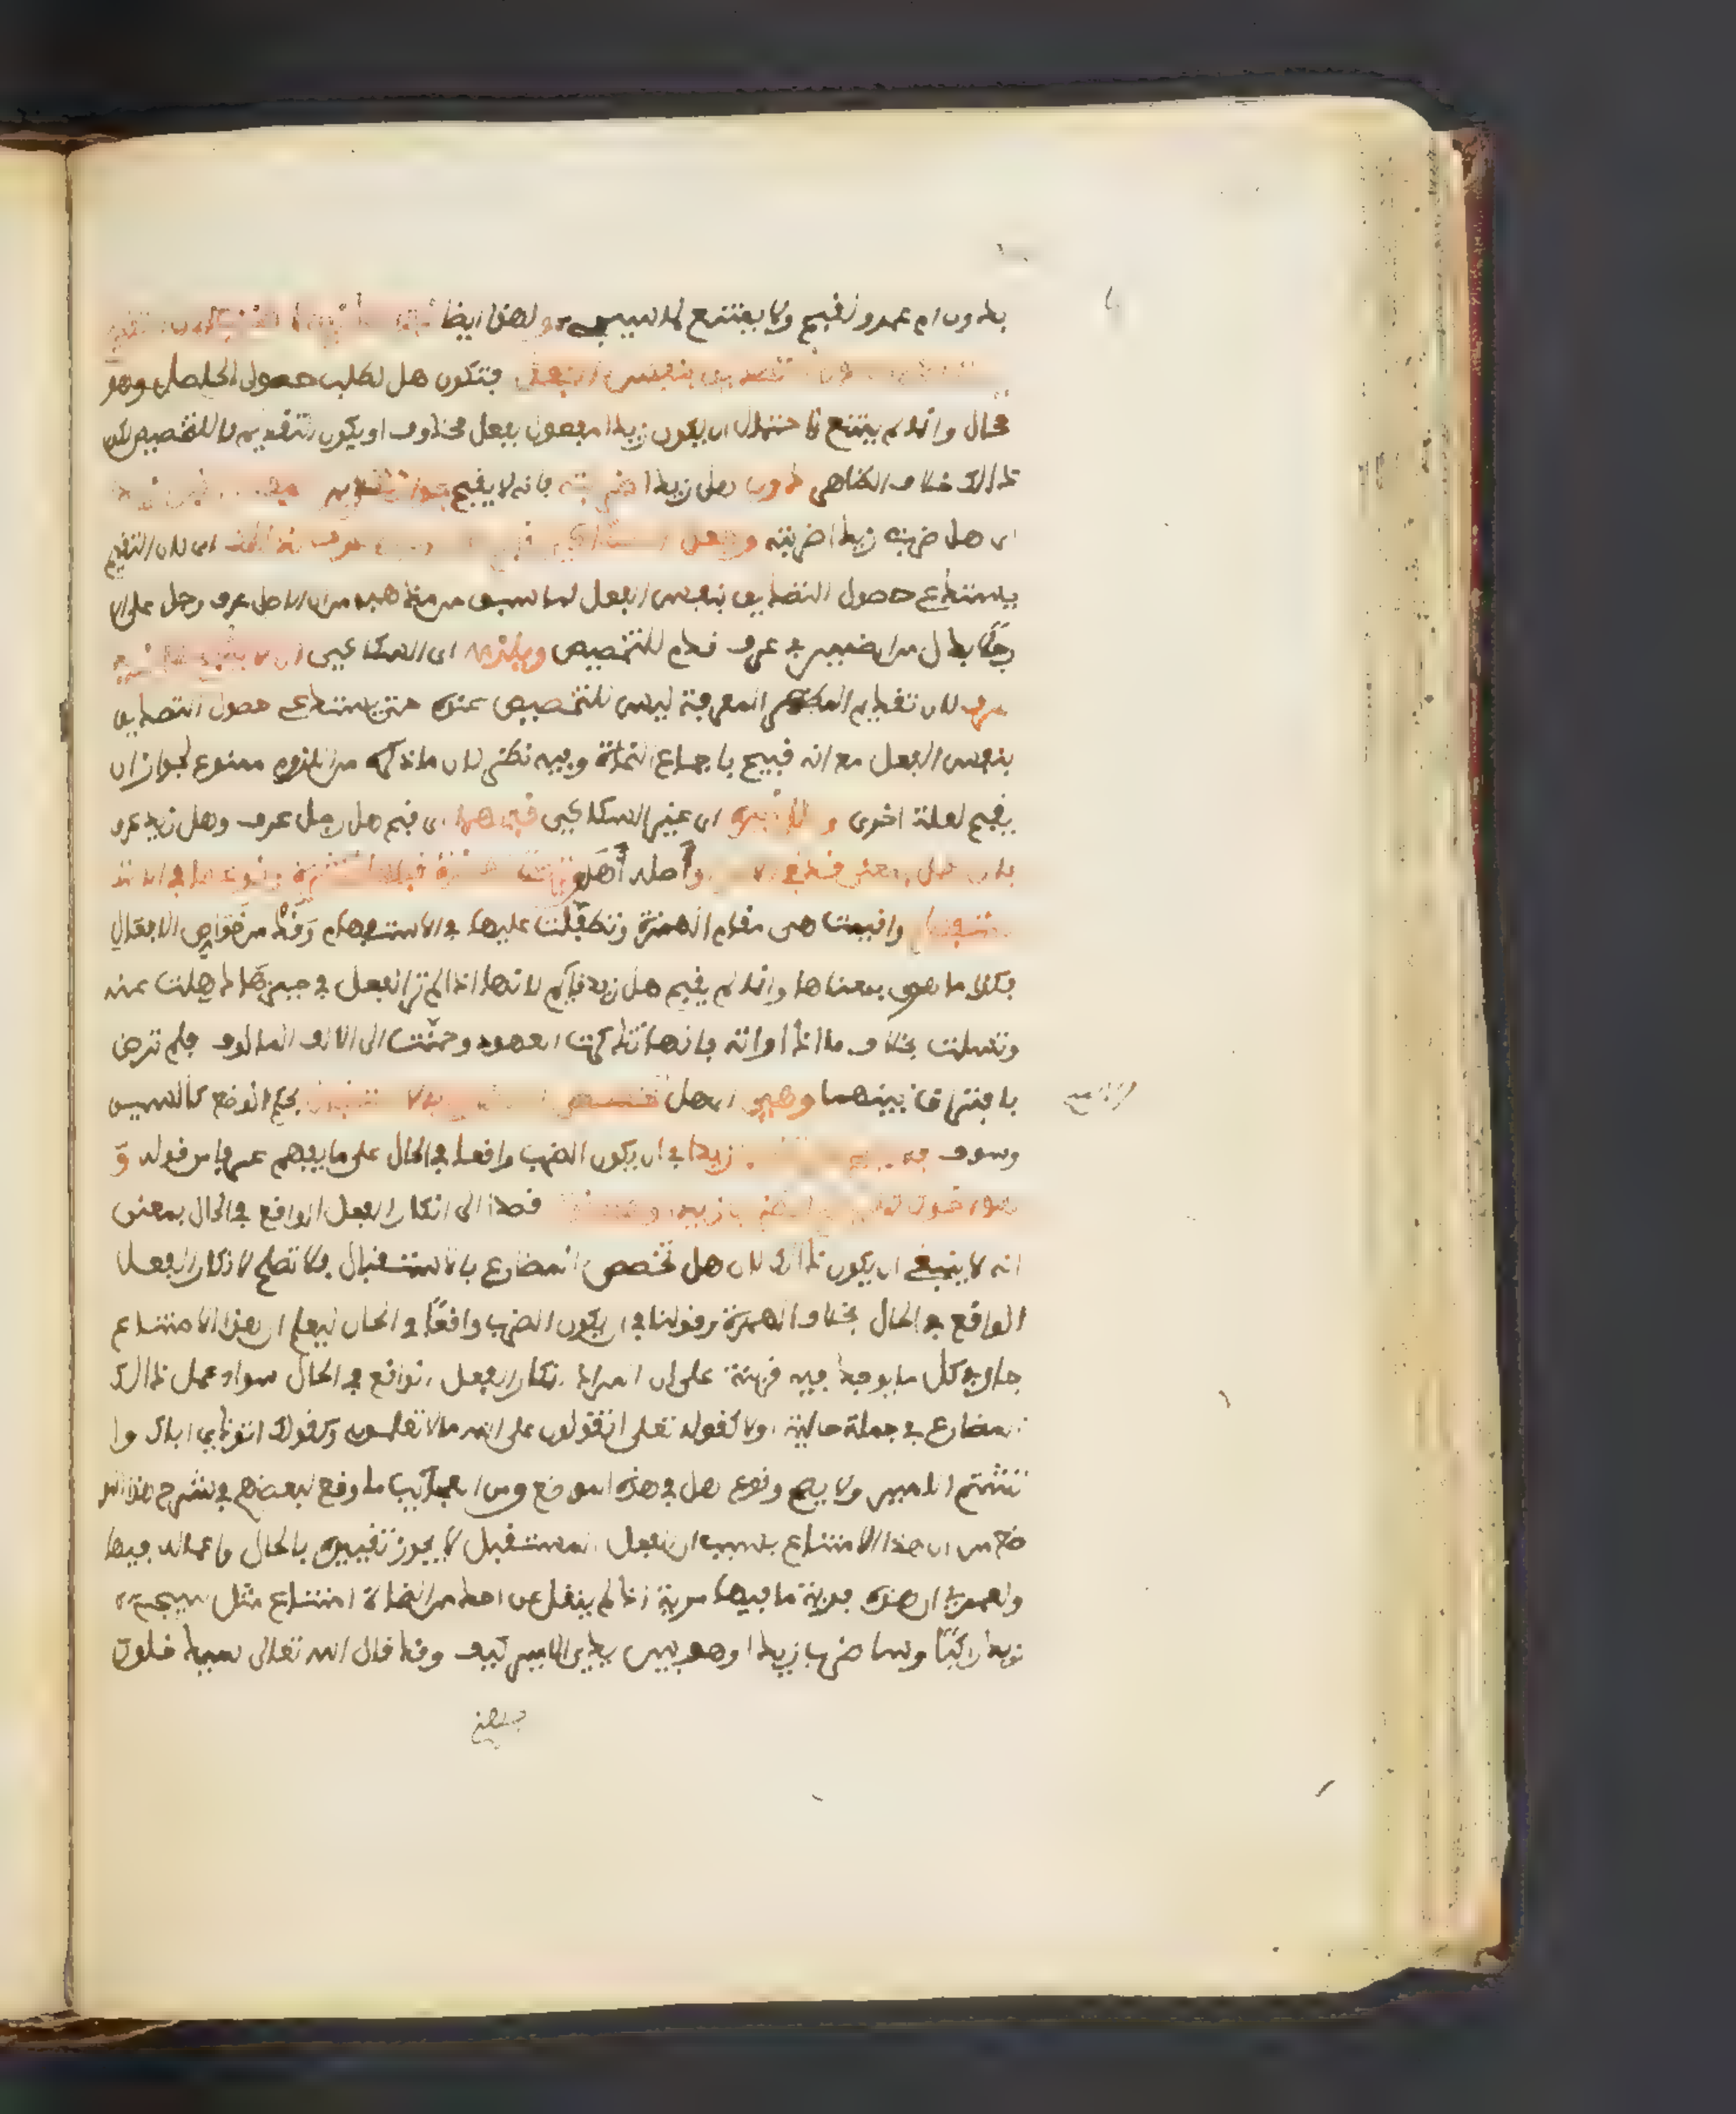 بدون ام عمرو لقبح ولا يمتنع لما سيجيء ولهذا ايضا
التصديق بنفس الفعل فتكون هل لطلب حصول الحاصل وهو
محال وانما لم يمتنع لاحتمال ان يكون زيدا مفعول بفعل محذوف او يكون التقديم لا للتخصيص لكن
ذالك خلاف الظاهر دون هل زيدا ضربته فانه لا يقبح لجواز تقدير
اى هل ضربت زيدا ضربته وجعل السكاكي قبح هل رجل عرف لذالك اى لان التقديم
يستدعي حصول التصديق بنفس الفعل لما سبق من مذهبه من ان الاصل عرف رجل على ان
رجلا بدل من الضمير في عرف قدم للتخصيص ويلزمه اى السكاكي ان لا يقبح هل زيد
عرف لان تقديم المظهر المعرفة ليس للتخصيص عنده حتى يستدعي حصول التصديق
بنفس الفعل مع انه قبيح باجماع النحاة وفيه نظر لان ما ذكره من اللزوم ممنوع لجواز ان
يقبح لعلة اخرى وعلل غيره اى غير السكاكي قبحهما اى قبح هل رجل عرف وهل زيد عرف
بان هل بمعنى قد في الاصل واصله أهل وترك الهمزة قبلها لكثرة وقوعها في الاستـ
ـتفهام واقيمت هي مقام الهمزة وتطفلت عليها في الاستفهام وقد من خواص الافعال
فكذا ما هي بمعناها وانما لم يقبح هل زيد قايم لانها اذا لم تر الفعل في حيزها ذهلت عنه
وتسلت بخلاف ما اذا راته فانها تذكرت العهود وحنت الى الالف المالوف فلم ترض
بافتراق بينهما وهي اى هل تخصص المضارع بالاستقبال بحكم الوضع كالسين
وسوف فلا يصح هل تضرب زيدا في ان يكون الضرب واقعا في الحال على ما يفهم عرفا من قوله و
هو اخوك كما يصح اتضرب زيدا وهو اخوك قصدا الى انكار الفعل الواقع في الحال بمعنى
انه لا ينبغي ان يكون ذالك لان هل تخصص المضارع بالاستقبال فلا تصلح لانكار الفعل
الواقع في الحال بخلاف الهمزة وقولنا في ان يكون الضرب واقعا في الحال ليعلم ان هذا الامتناع
جار في كل ما يوجد فيه قرينة على ان المراد انكار الفعل الواقع في الحال سواء عمل ذالك
المضارع في جملة حالية اولا كقوله تعلى اتقولون على الله ما لا تعلمون وكقولك اتوذي اباك وا
تشتم الامير ولا يصح وقوع هل في هذه المواضع ومن العجايب ما وقع لبعضهم في شرح هذا المو
ضع من ان هذا الامتناع بسبب ان الفعل المستقبل لا يجوز تقييده بالحال واعماله فيها
ولعمري ان هذه فرية ما فيها مرية اذ لم ينقل عن احد من النحاة امتناع مثل سيجيء
زيد راكبا وسا ضرب زيدا وهو بين يدي الامير كيف وقد قال الله تعالى سيدخلون